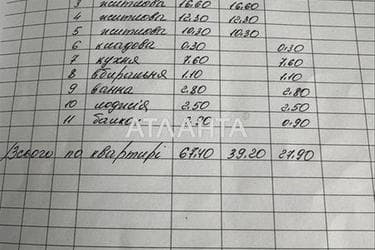 3 житлова 16.60 16.60
4 житлова 12.30 12.30
5 житлова 10.30 10.30
6 кладова 0.30 0.30
7 кухня 7.60 7.60
8 вбиральня 1.10 1.10
9 ванна 2.80 2.80
10 лоджія 2.50 2.50
11 балкон 0.90
АТЛАНТА
Всього по квартирі 67.40 39.20 27.90